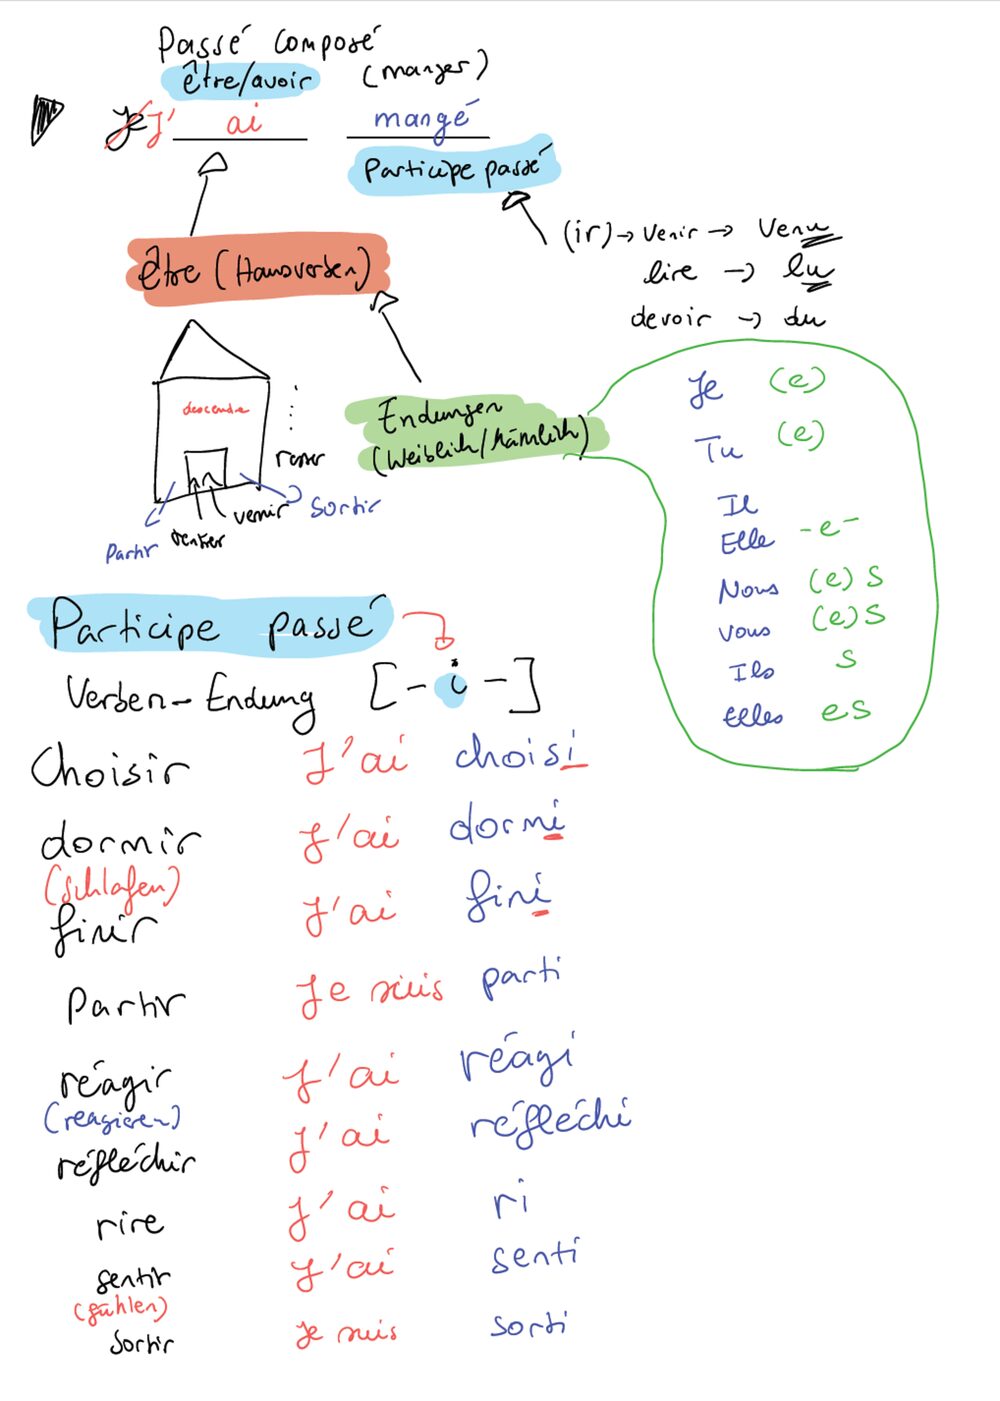 Passé composé
être/avoir (manger)
Je J' ai mangé
Participe passé
être (Hausverben)
(ir) → venir → venu
lire → lu
devoir → du
descendre
rentrer
venir
Sortir
Partir
Endungen
(Weiblich/Männlich)
Je (e)
Tu (e)
Il
Elle -e-
Nous (e) s
vous (e) s
Ils s
Elles es
Participe passé
Verben-Endung [- i -]
Choisir J'ai choisi
dormir J'ai dormi
(schlafen)
finir J'ai fini
Partir Je suis parti
réagir J'ai réagi
(reagieren)
réfléchir J'ai réfléchi
rire J'ai ri
sentir J'ai senti
(fühlen)
Sortir Je suis sorti